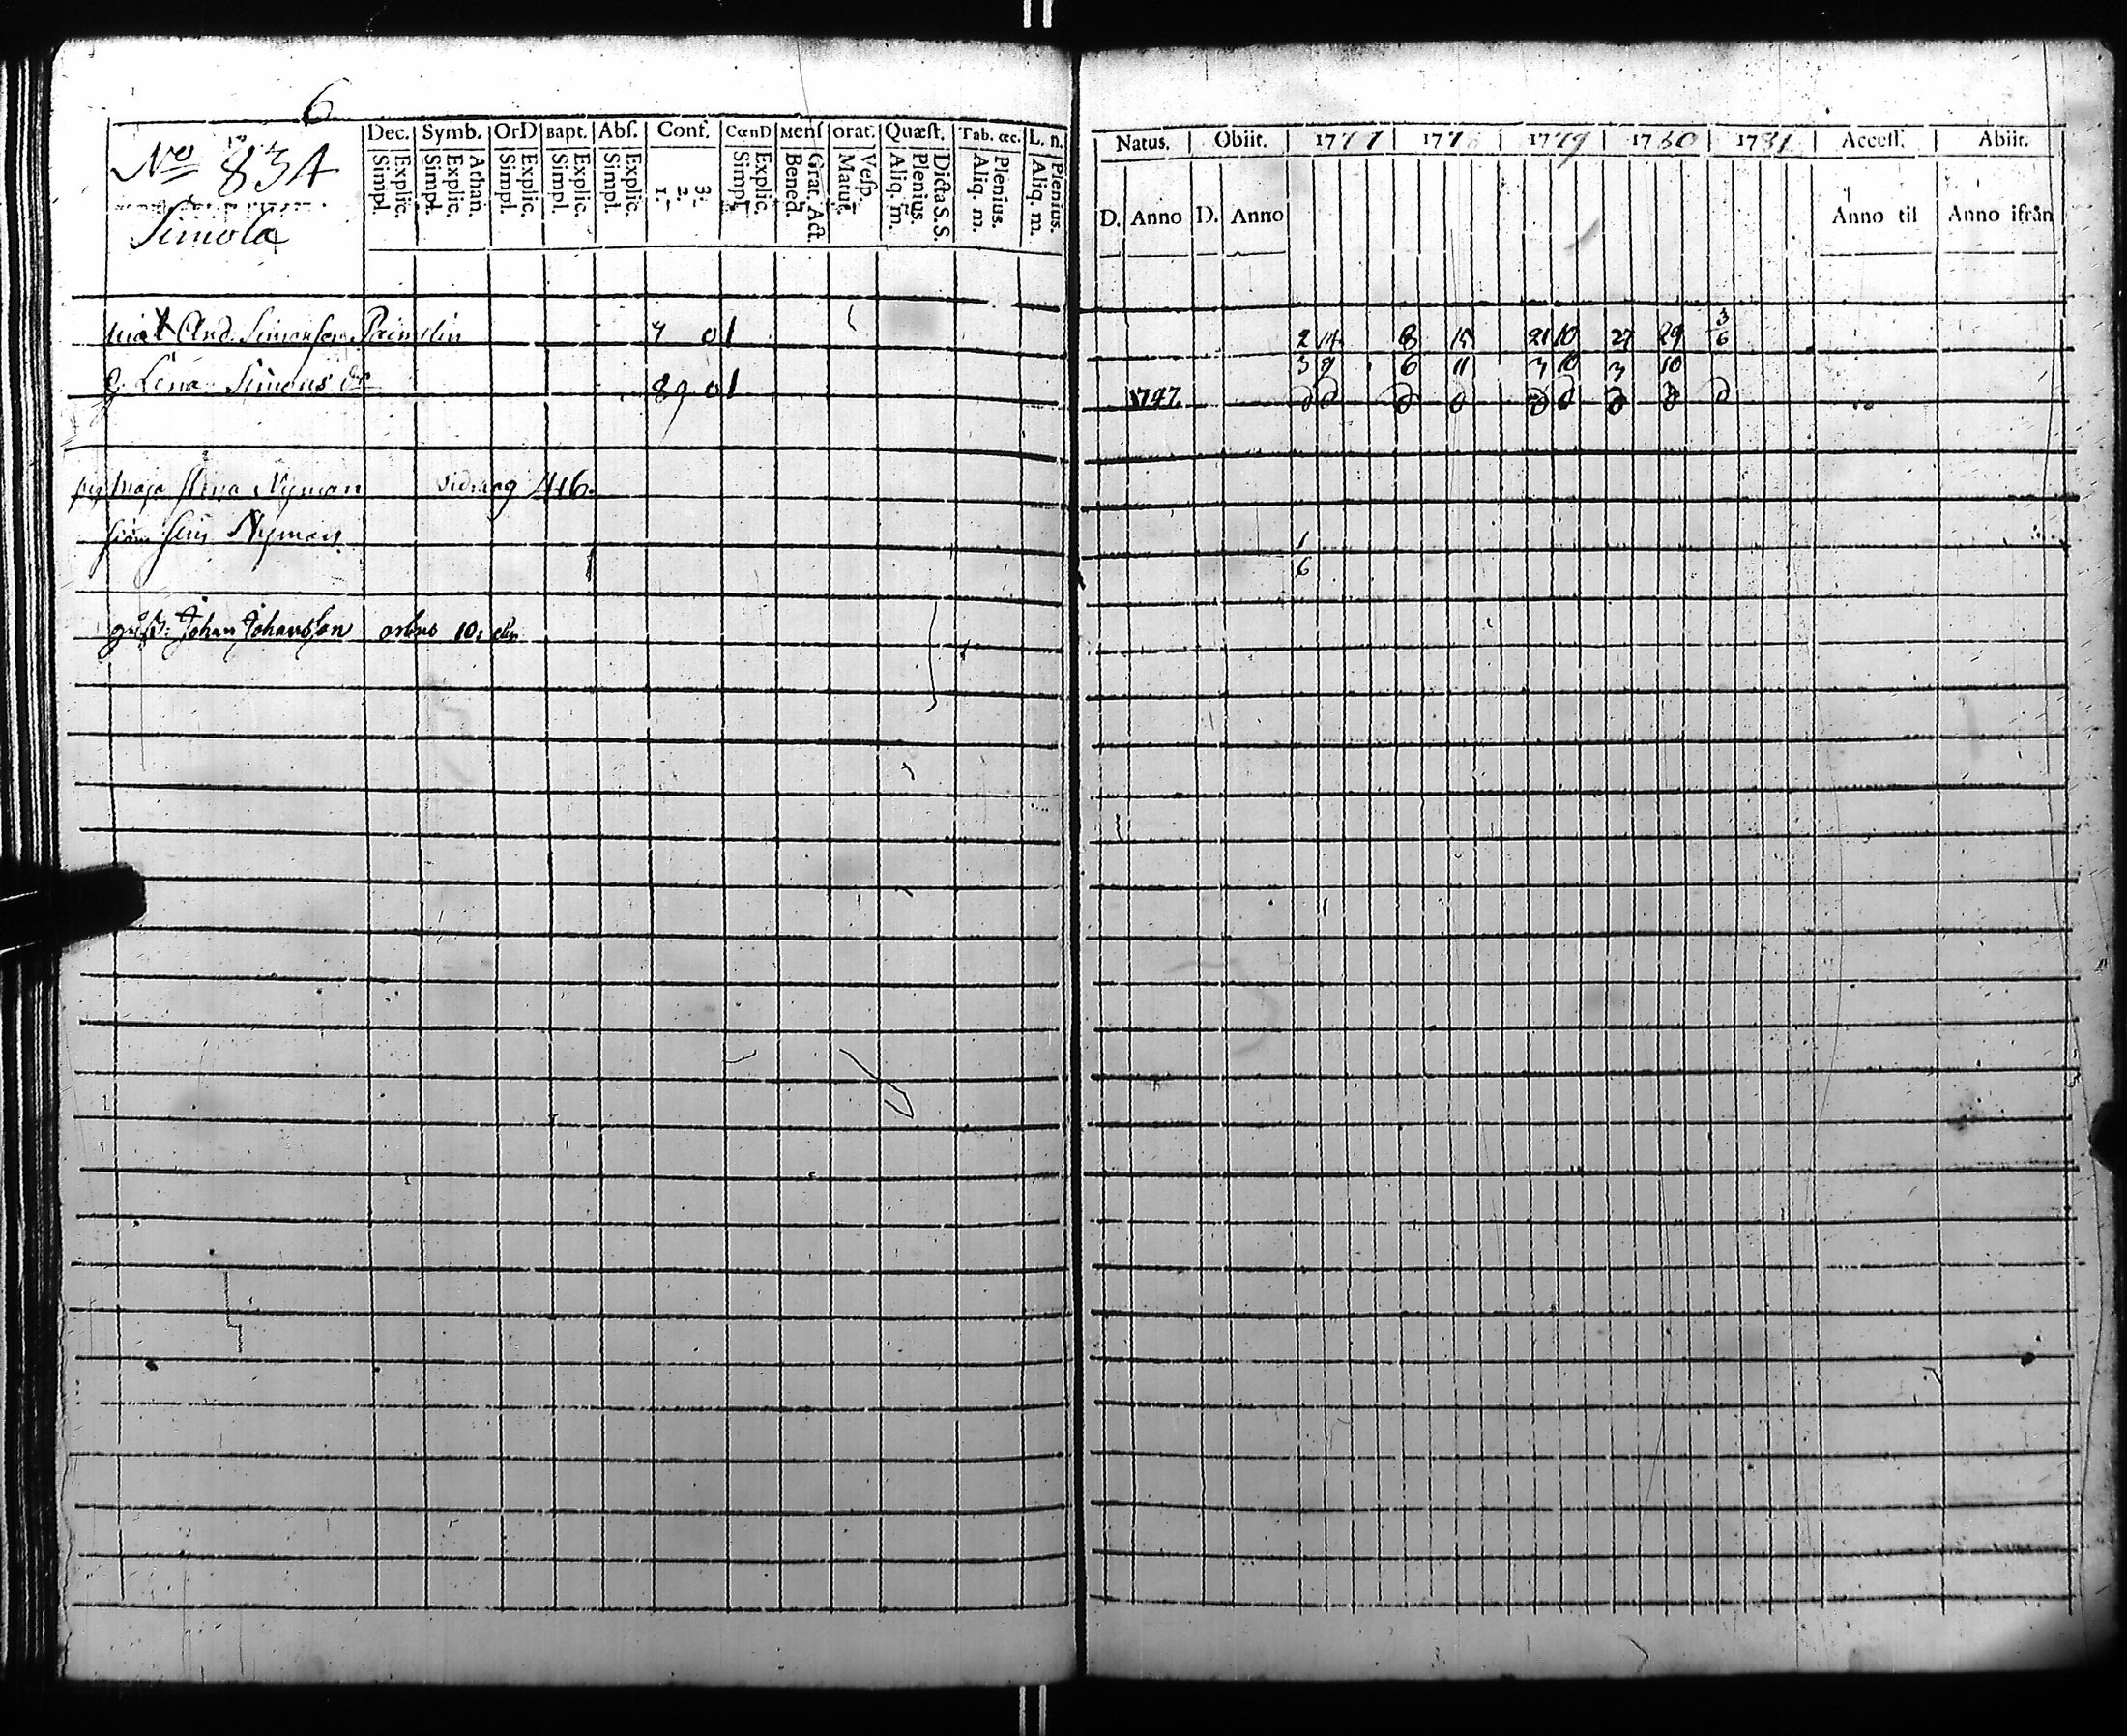 6
No 83A
Simola
Dec. Symb. OrD Bapt. Abſ. Conf. CœnD Menſ orat. Quæſt. Tab. œc. L. n.
Simpl. Explic. Simpl. Explic. Athan. Simpl. Explic. Simpl. Explic. Simpl. Explic. 1. 2. 3. Simpl. Explic. Bened. Grat. Act. Matut. Veſp. Aliq. m. Plenius. Dicta S. S. Aliq. m. Plenius. Aliq. m. Plenius.
Natus. Obiit. 1777 1778 1779 1780 1781 Acceſſ. Abiit.
D. Anno D. Anno Anno til Anno ifrån
And. Simonſon 7 01 2 14 8 15 21 10 27 29 3
3 9 6 11 3 10 3 10 6
Lena Simons dr 89 01 1747
Maja Nyman 416.
Nyman 1
6
Johan Johansson 10